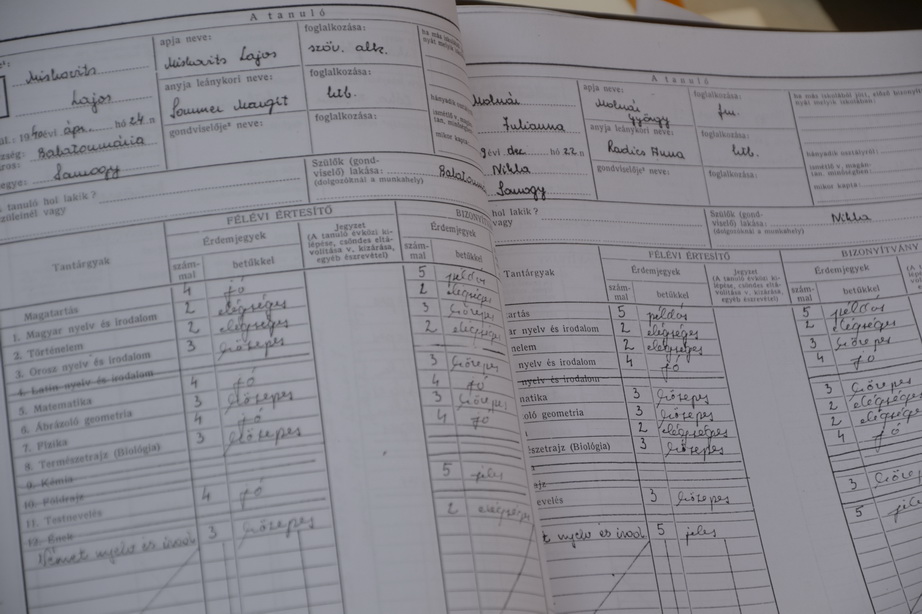 A tanuló
Miskovits
Lajos
apja neve:
Miskovits Lajos
foglalkozása:
szöv. alk.
anyja leánykori neve:
Sommer Margit
foglalkozása:
htb.
gondviselője neve:
foglalkozása:
évi ápr. hó 24 n
Balatonmária
Somogy
tanuló hol lakik?
vagy
Szülők (gond-
viselő) lakása:
(dolgozóknál a munkahely)
FÉLÉVI ÉRTESÍTŐ
Tantárgyak
Érdemjegyek
szám-
mal
betűkkel
Jegyzet
(A tanuló évközi ki-
lépése, csöndes eltá-
volítása v. kizárása,
egyéb észrevétel)
Érdemjegyek
szám-
mal
betűkkel
Magatartás 4 jó 5 példás
1. Magyar nyelv és irodalom 2 elégséges 2 elégséges
2. Történelem 2 elégséges 3 közepes
3. Orosz nyelv és irodalom 3 közepes 2 elégséges
4. Latin nyelv és irodalom
5. Matematika 4 jó 3 közepes
6. Ábrázoló geometria 3 közepes 4 jó
7. Fizika 4 jó 3 közepes
8. Természetrajz (Biológia) 3 közepes 4 jó
9. Kémia
10. Földrajz
11. Testnevelés 4 jó 5 jeles
12. Ének
Német nyelv és irod. 3 közepes 2 elégséges
A tanuló
Molnár
Julianna
apja neve:
Molnár
György
foglalkozása:
fm.
anyja leánykori neve:
Radics Anna
foglalkozása:
htb.
gondviselője neve:
foglalkozása:
évi dec. hó 22 n
Nikla
Somogy
hol lakik?
vagy
Szülők (gond-
viselő) lakása:
(dolgozóknál a munkahely)
Nikla
FÉLÉVI ÉRTESÍTŐ
BIZONYÍTVÁNY
Tantárgyak
Érdemjegyek
szám-
mal
betűkkel
Jegyzet
(A tanuló évközi ki-
lépése, csöndes eltá-
volítása v. kizárása,
egyéb észrevétel)
Érdemjegyek
szám-
mal
betűkkel
tartás 5 példás 5 példás
nyelv és irodalom 2 elégséges 2 elégséges
nelem 2 elégséges 3 közepes
nyelv és irodalom 4 jó 4 jó
nyelv és irodalom
matika 3 közepes 3 közepes
geometria 3 közepes 2 elégséges
2 elégséges 2 elégséges
szetrajz (Biológia) 3 közepes 4 jó
evelés 3 közepes 3 közepes
nyelv és irod. 5 jeles 5 jeles